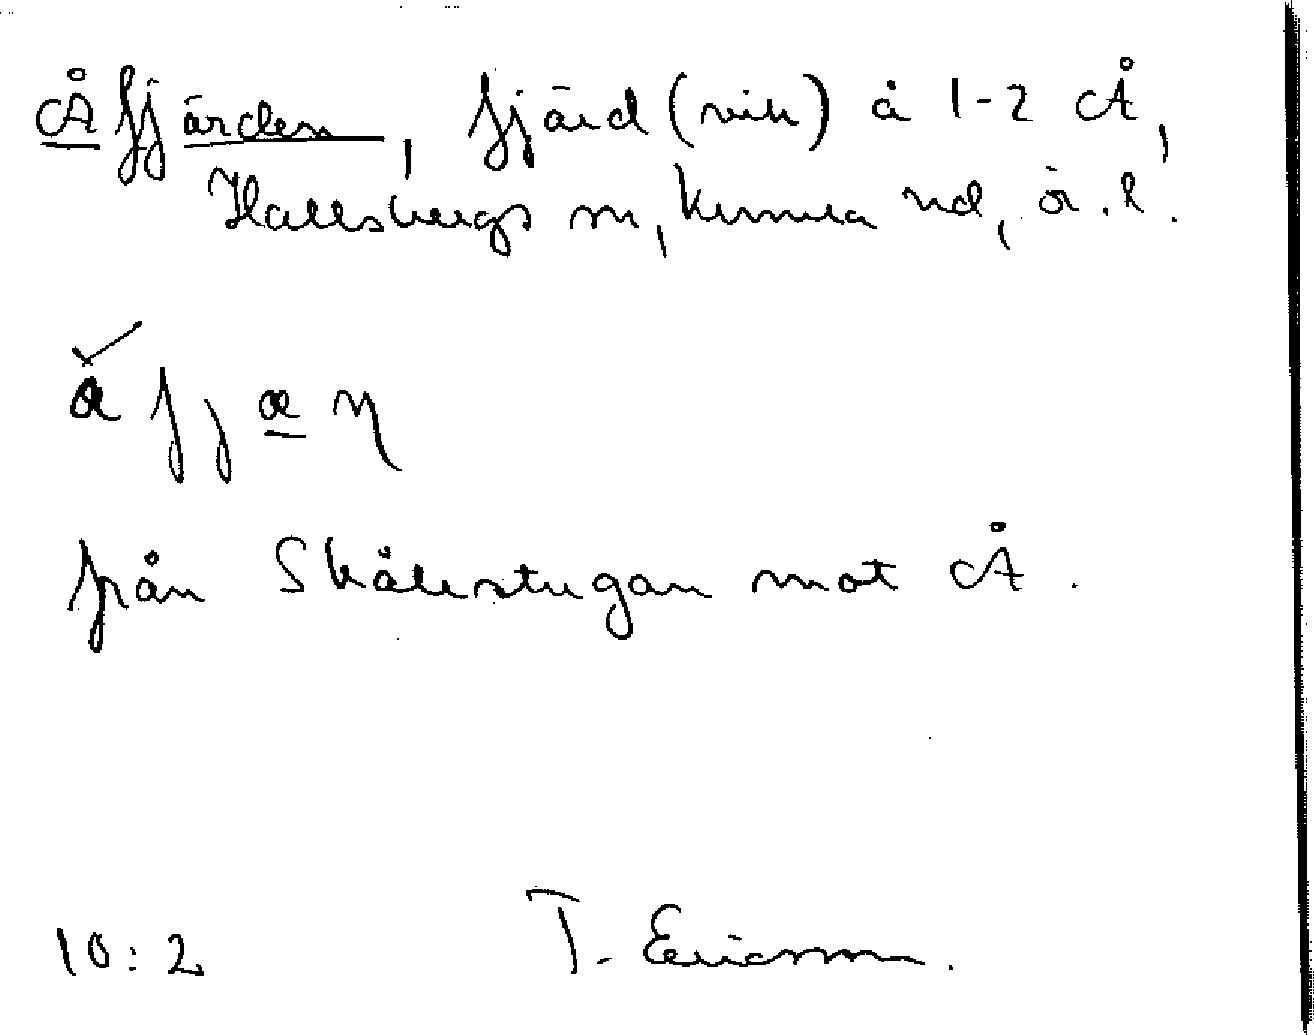 Åfjärden, fjärd (vik) å 1-2 Å,
Hallsbergs sn, Kumla hd, ör. l.
från Skålerstugan mot Å.
10:2 T. Ericsson.